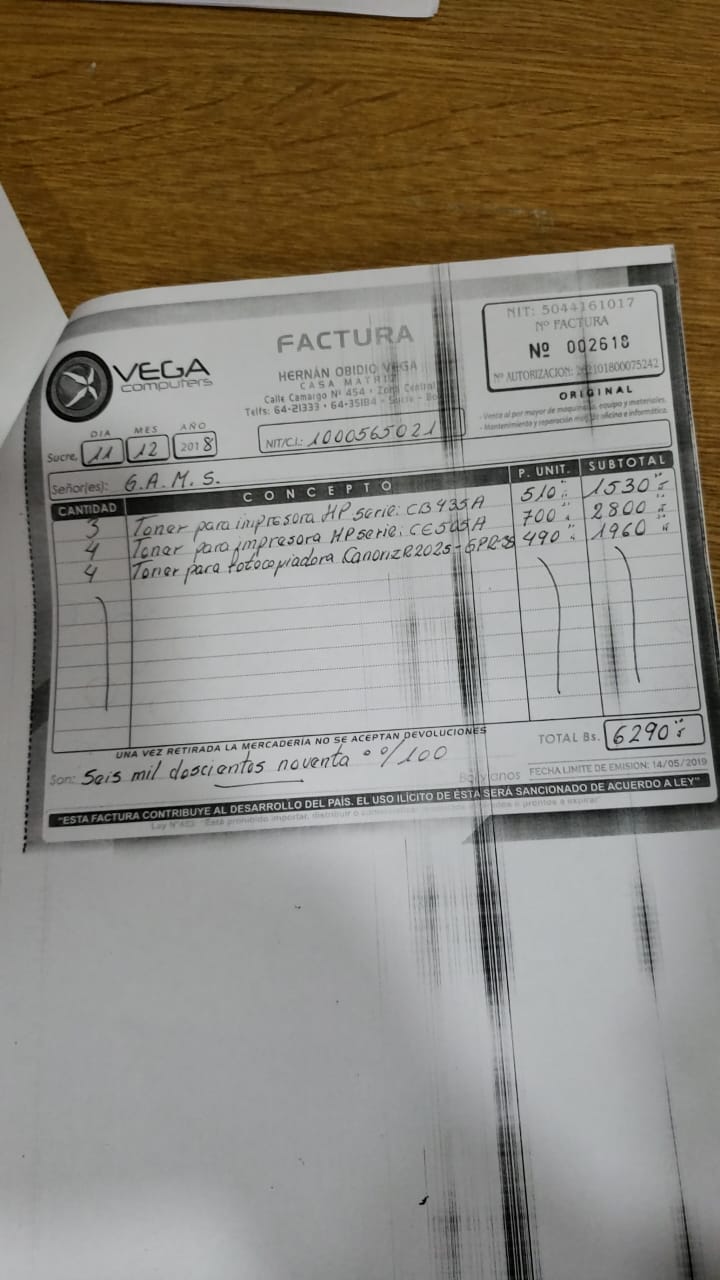 VEGA
computers
FACTURA
HERNÁN OBIDIO VEGA
CASA MATRIZ
Calle Camargo Nº 454 • Zona Central
Telfs: 64-21333 • 64-35184 - Sucre - Bo
NIT: 5044161017
Nº FACTURA
Nº 002618
Nº AUTORIZACION: 262101800075242
ORIGINAL
- Venta al por mayor de maquinas, equipo y materiales.
- Mantenimiento y reparación de oficina e informática.
DIA MES AÑO
Sucre, 11 12 2018
NIT/C.I.: 1000565021
Señor(es): G.A.M.S.
CANTIDAD CONCEPTO P. UNIT. SUBTOTAL
3 Toner para impresora HP serie: CB435A 510 1530
4 Toner para impresora HP serie: CE505A 700 2800
4 Toner para fotocopiadora Canon 490 1960
UNA VEZ RETIRADA LA MERCADERÍA NO SE ACEPTAN DEVOLUCIONES
TOTAL Bs. 6290
Son: Seis mil doscientos noventa 00/100 Bolivianos
FECHA LIMITE DE EMISION: 14/05/2019
"ESTA FACTURA CONTRIBUYE AL DESARROLLO DEL PAÍS. EL USO ILÍCITO DE ÉSTA SERÁ SANCIONADO DE ACUERDO A LEY"